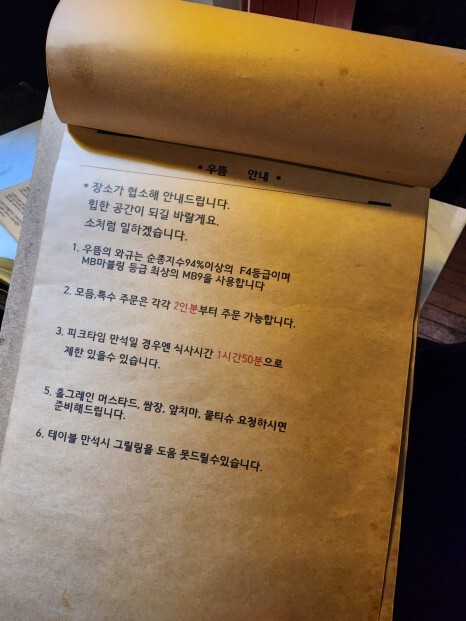 • 우뜸 안내 •
* 장소가 협소해 안내드립니다.
힙한 공간이 되길 바랄게요.
소처럼 일하겠습니다.
1. 우뜸의 와규는 순종지수94%이상의 F4등급이며
MB마블링 등급 최상의 MB9을 사용합니다
2. 모듬,특수 주문은 각각 2인분부터 주문 가능합니다.
3. 피크타임 만석일 경우엔 식사시간 1시간50분으로
제한 있을수 있습니다.
5. 홀그레인 머스타드, 쌈장, 앞치마, 물티슈 요청하시면
준비해드립니다.
6. 테이블 만석시 그릴링을 도움 못드릴수있습니다.